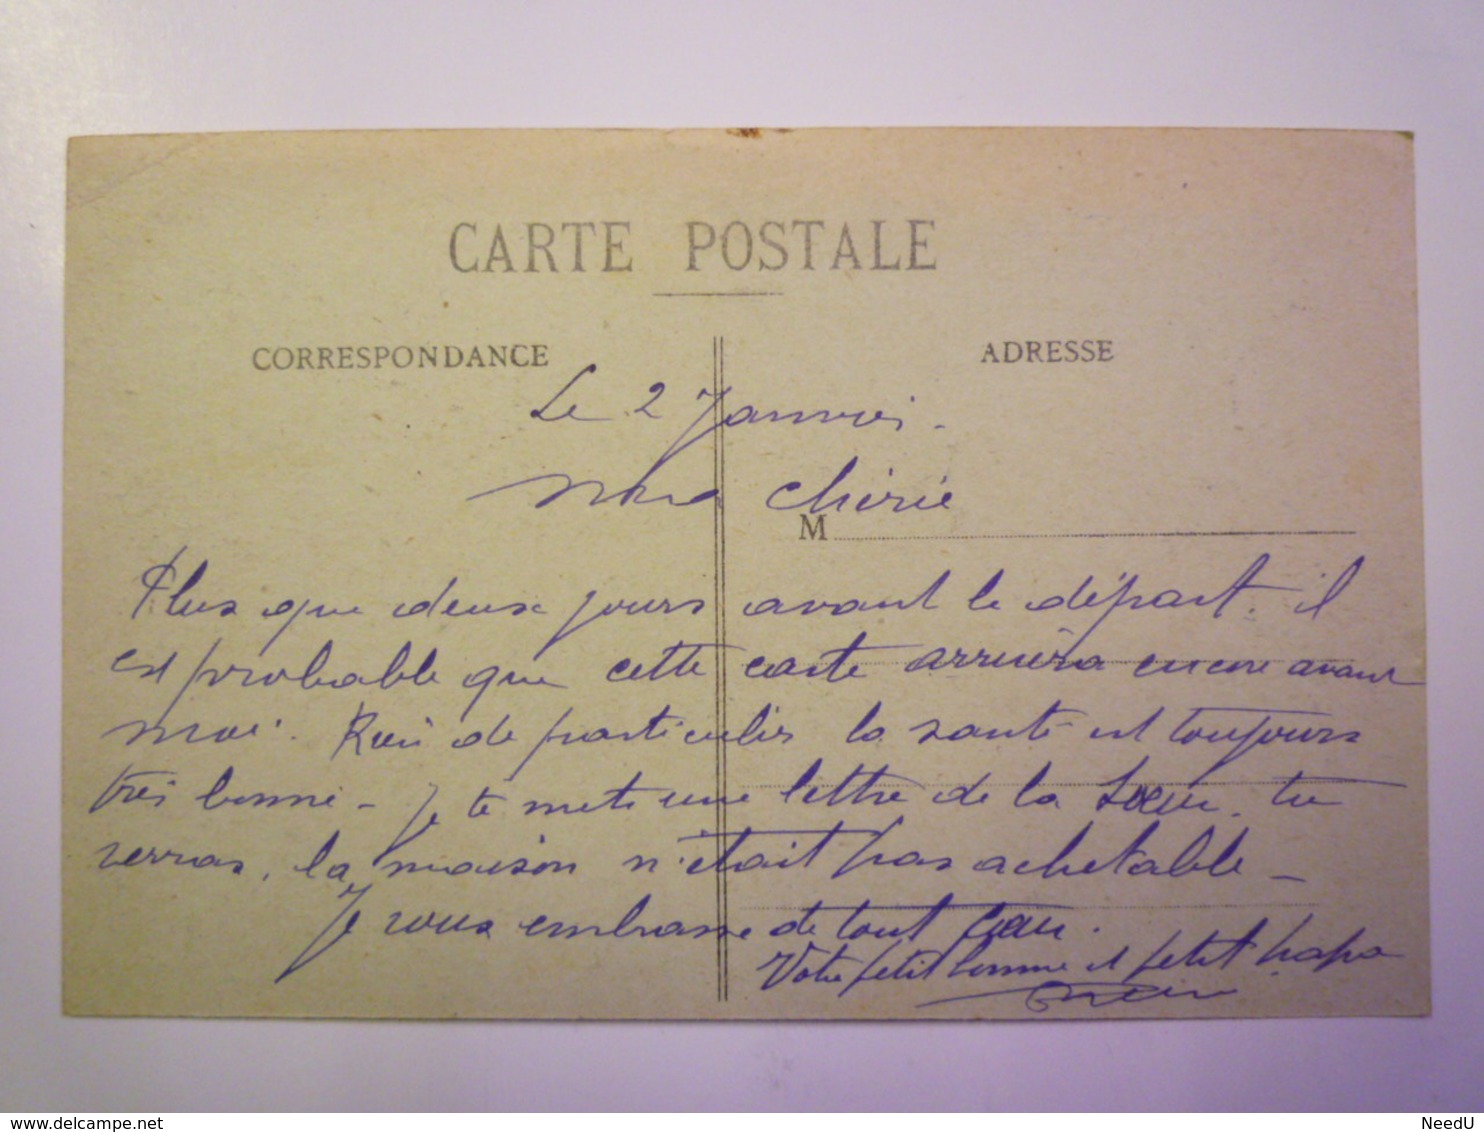 CARTE POSTALE
CORRESPONDANCE
ADRESSE
Le 2 Janvier.
Ma chérie
M
Plus que deux jours avant le départ. il
est probable que cette carte arrivera encore avant
moi. Rien de particulier la santé est toujours
très bonne - Je te mets une lettre de la soeur. tu
verras, la maison n'était pas achetable -
Je vous embrasse de tout coeur.
Votre petit homme et petit papa
delcampe.net
NeedU